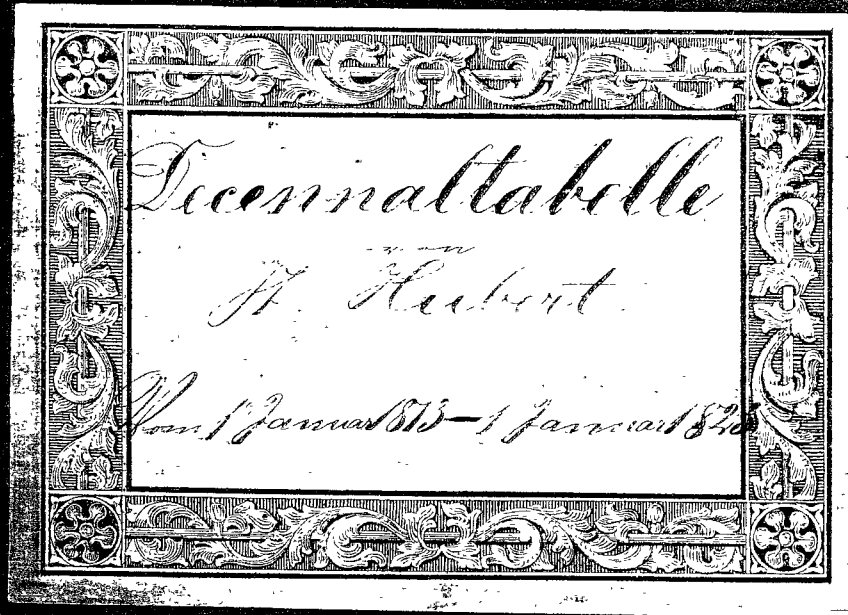 Decennaltabelle
von
St. Hubert
Vom 1 Januar 1813 – 1 Januar 1823